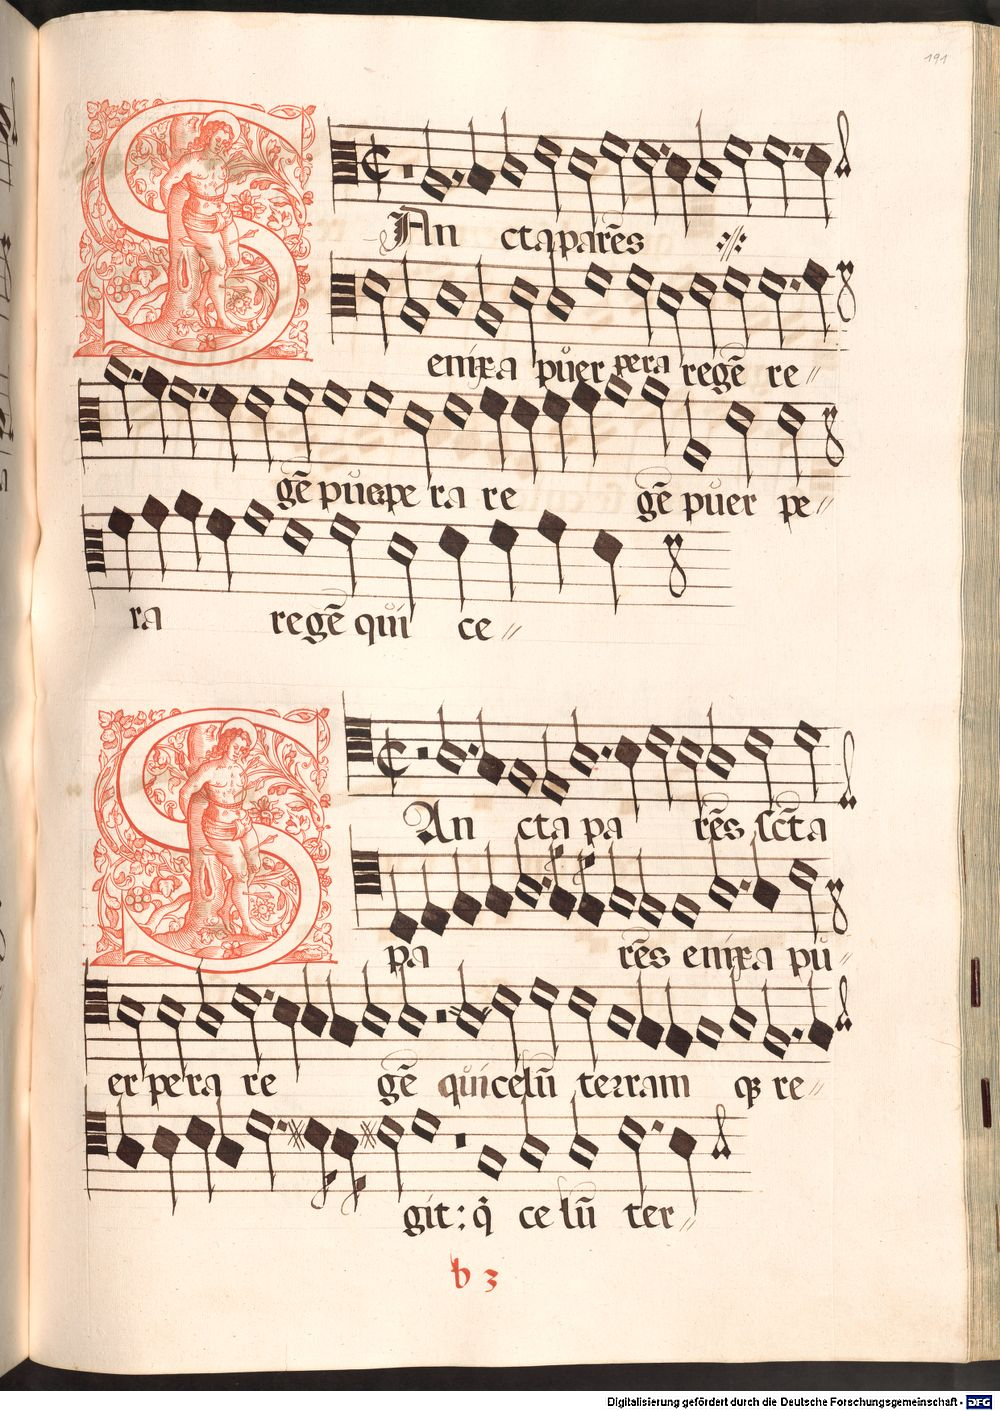 191
SAn ctaparẽs
enixa půer pera regẽ re
gẽ půer pe ra re gẽ půer pe
ra regẽ qui ce
SAn cta pa rẽs sct̃a
pa rẽs enixa pů
er pe ra re gẽ qui celũ terram qз re
git: q̊ ce lũ ter
b 3
Digitalisierung gefördert durch die Deutsche Forschungsgemeinschaft - DFG